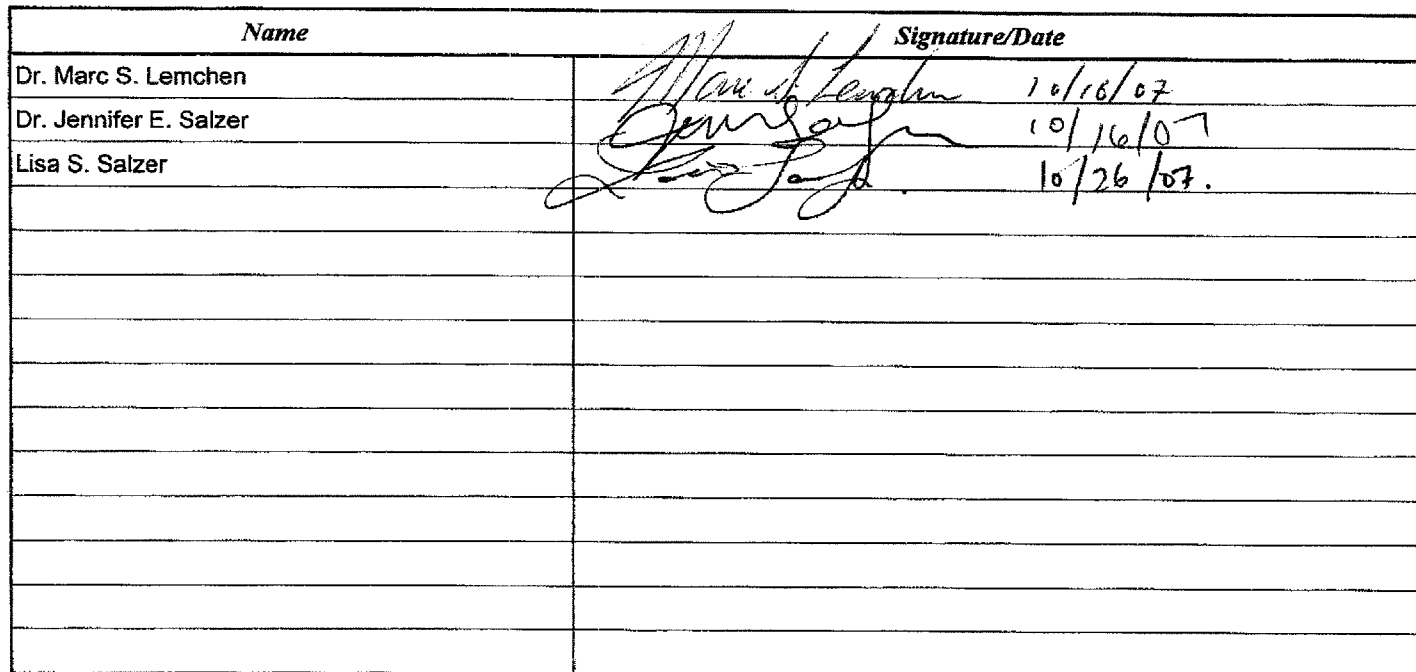 Name Signature/Date
Dr. Marc S. Lemchen Marc S. Lemchen 10/16/07
Dr. Jennifer E. Salzer 10/16/07
Lisa S. Salzer 10/26/07.